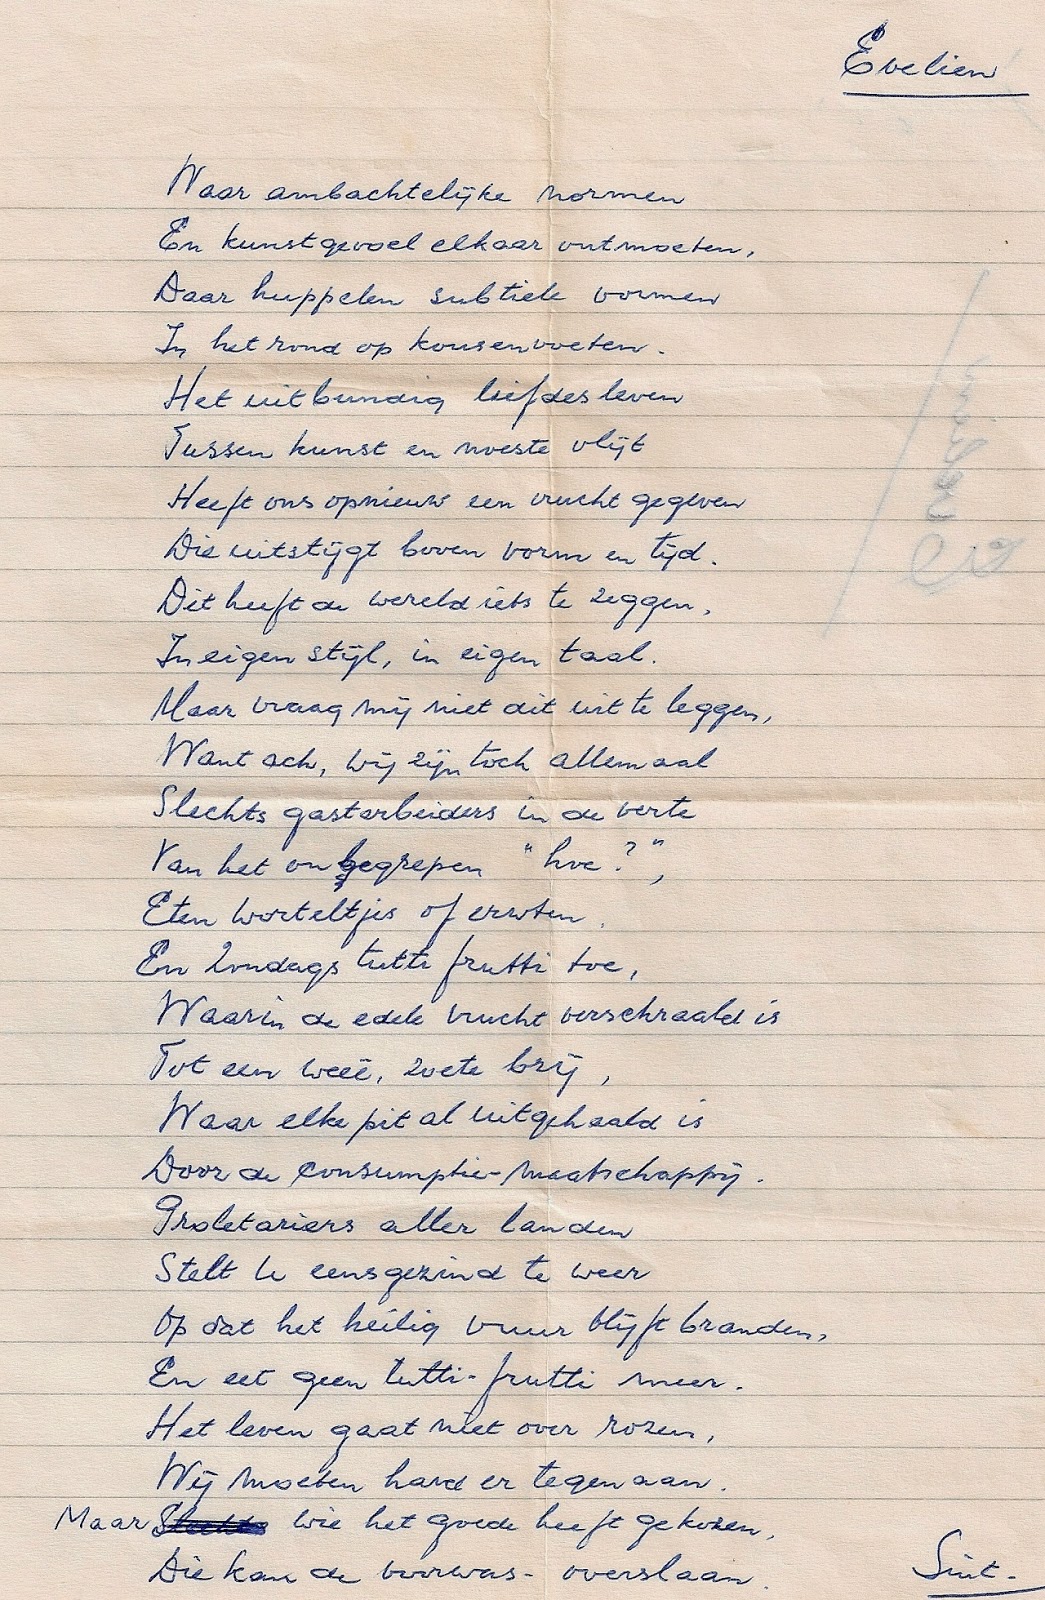 Evelien
Waar ambachtelijke normen
En kunstgevoel elkaar ontmoeten,
Daar huppelen subtiele vormen
In het rond op kousenvoeten.
Het uitbundig liefdesleven
Tussen kunst en noeste vlijt
Heeft ons opnieuw een vrucht gegeven
Die uitstijgt boven vorm en tijd.
Dit heeft de wereld iets te zeggen,
In eigen stijl, in eigen taal.
Maar vraag mij niet dit uit te leggen,
Want ach, wij zijn toch allemaal
Slechts gastarbeiders in de verte
Van het onbegrepen "hoe?",
Eten worteltjes of erwten,
En Zondags tutti frutti toe,
Waarin de edele vrucht verschraald is
Tot een weeë, zoete brij,
Waar elke pit al uitgehaald is
Door de consumptie-maatschappij.
Proletariers aller landen
Stelt U eensgezind te weer
Op dat het heilig vuur blijft branden,
En eet geen tutti-frutti meer.
Het leven gaat niet over rozen,
Wij moeten hard er tegen aan.
Maar Slechts wie het goede heeft gekozen,
Die kan de voorwas- overslaan.
Sint.